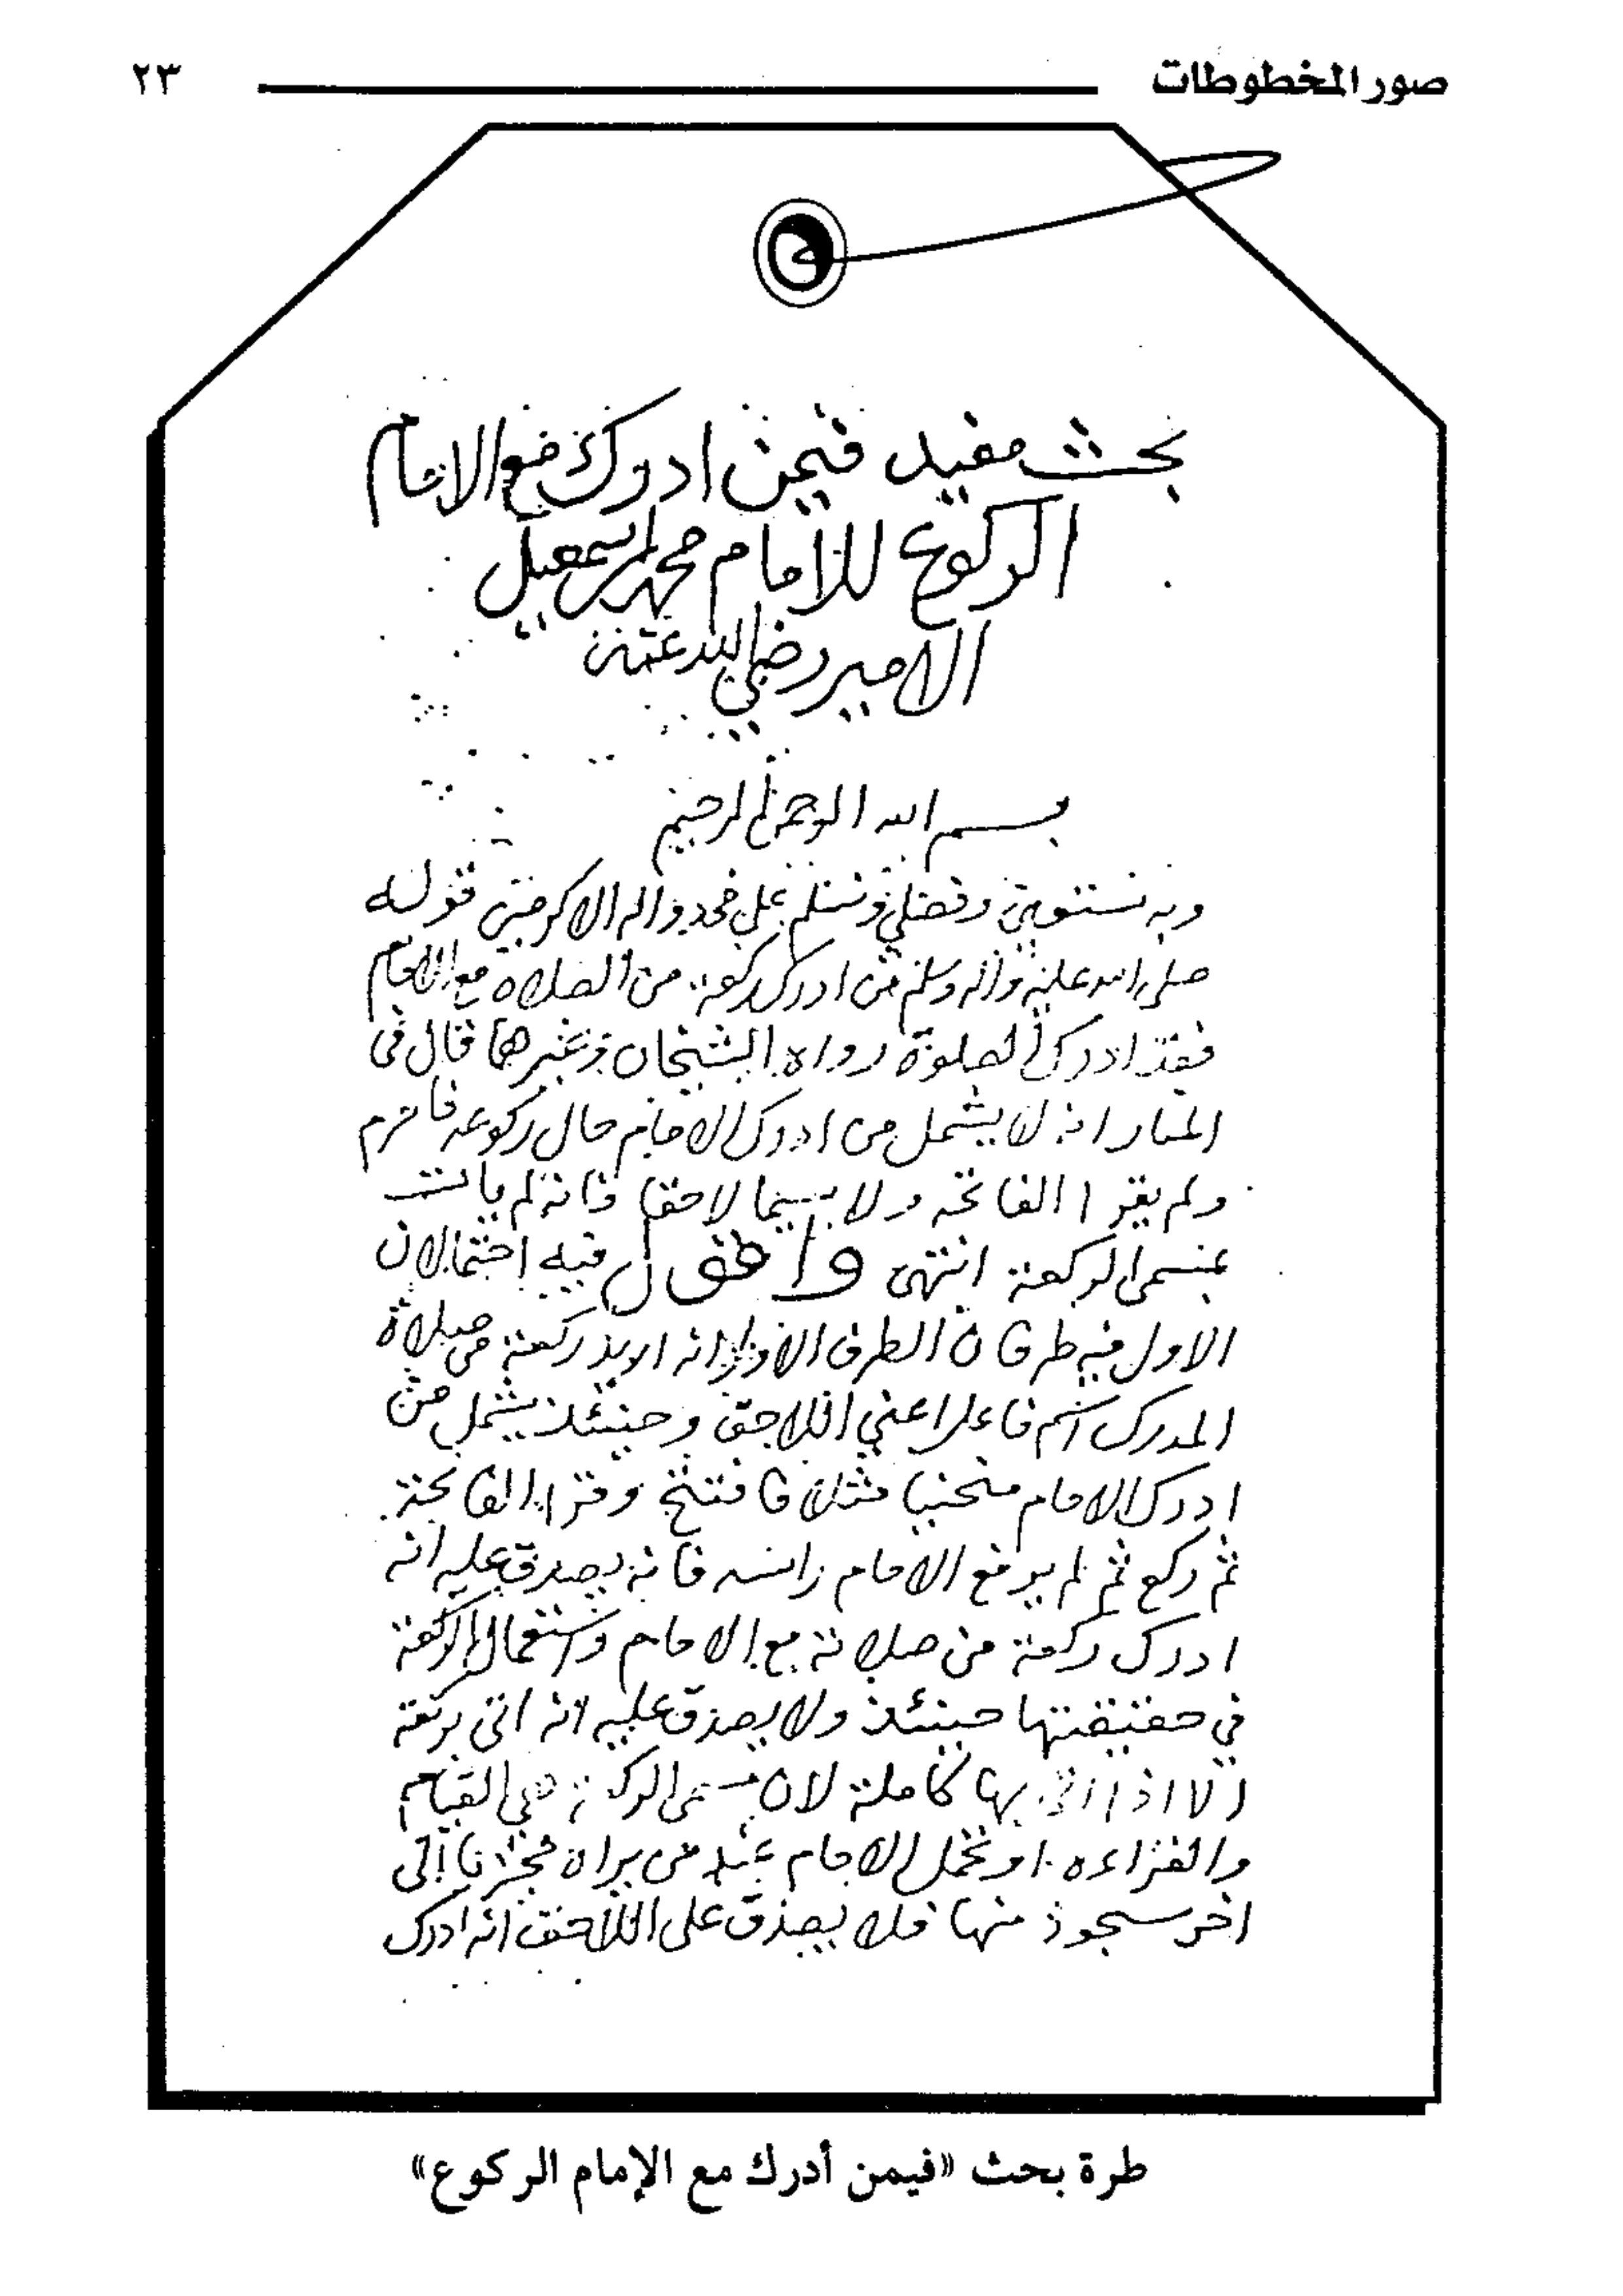 صور المخطوطات ٢٣
بحث مفيد فيمن ادرك مع الامام
الركوع للامام محمد بن اسمعيل
الامير رضي الله عنه
بسم الله الرحمن الرحيم
وبه نستعين ونصلي ونسلم على محمد واله الاكرمين قوله
صلى الله عليه وآله وسلم من ادرك ركعة من الصلاة مع الامام
فقد ادرك الصلوة رواه الشيخان وغيرهما قال في
المنار انه لا يشمل من ادرك الامام حال ركوعه فاحرم
ولم يقرا الفاتحه ولا سيما لاحقا فانه لم يات
بمسمى الركعة انتهى واقول فيه احتمالان
الاول فيه طرفان الطرف الاول انه اريد ركعة من صلاة
المدرك اسم فاعل اعني اللاحق وحينئذ يشمل من
ادرك الامام منحنيا مثلا فافتتح وقرا الفاتحة
ثم ركع ثم لم يرفع الامام راسه فانه يصدق عليه انه
ادرك ركعة من صلاته مع الامام واستعمال الركعة
في حقيقتها حينئذ ولا يصدق عليه انه اتى بركعة
الا اذا اتى بها كاملة لان مسمى الركعة هي القيام
والقراءه او تحمل الامام عند من يراه مجزيا الى
اخر سجود منها فلا يصدق على اللاحق انه ادرك
طرة بحث «فيمن أدرك مع الإمام الركوع»